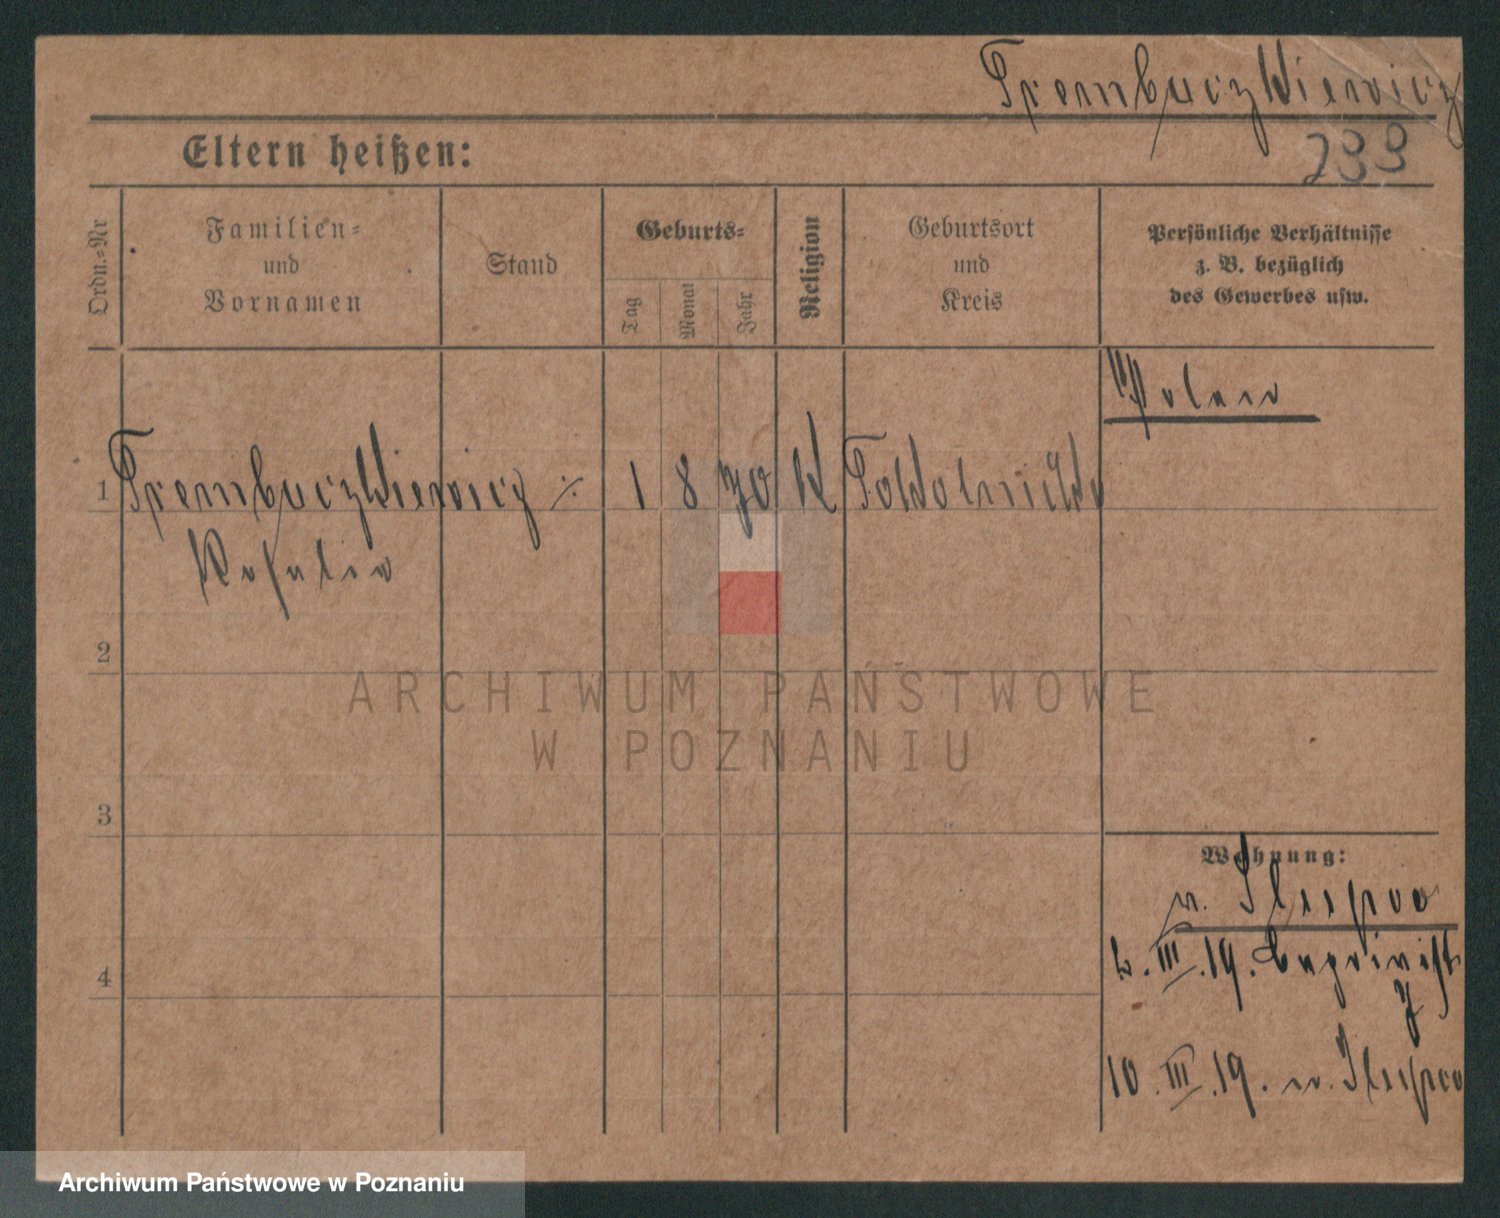 Trembaczkiewicz
233
Eltern heißen:
Ordn.-Nr
Familien-
und
Vornamen
Stand
Geburts-
Tag
Monat
Jahr
Religion
Geburtsort
und
Kreis
Persönliche Verhältnisse
z. B. bezüglich
des Gewerbes usw.
1
Trembaczkiewicz ./. 1 8 70 K
Rosalia
2
3
4
Wohnung:
n.
2. III. 19.
10. III. 19. n.
ARCHIWUM PAŃSTWOWE
W POZNANIU
Archiwum Państwowe w Poznaniu